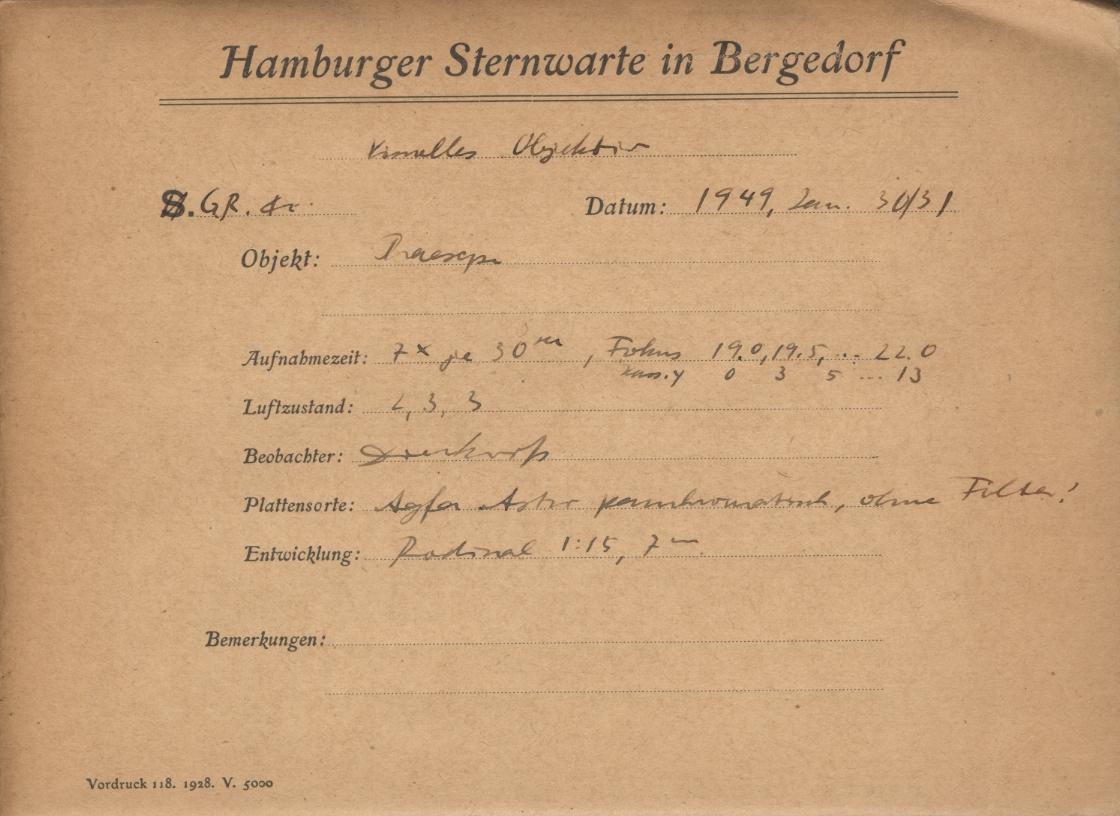 Hamburger Sternwarte in Bergedorf
Visuelles Objektiv
GR. Datum: 1949, Jan. 30/31
Objekt: Praesepe
Aufnahmezeit: 7x je 30ᵐ, Fokus 19.0, 19.5, ... 22.0
0 3 5 ... 13
Luftzustand: 2, 3, 3
Beobachter:
Plattensorte: Agfa Astro panchromatisch, ohne Filter!
Entwicklung: Rodinal 1:15, 7ᵐ
Bemerkungen:
Vordruck 118. 1928. V. 5000